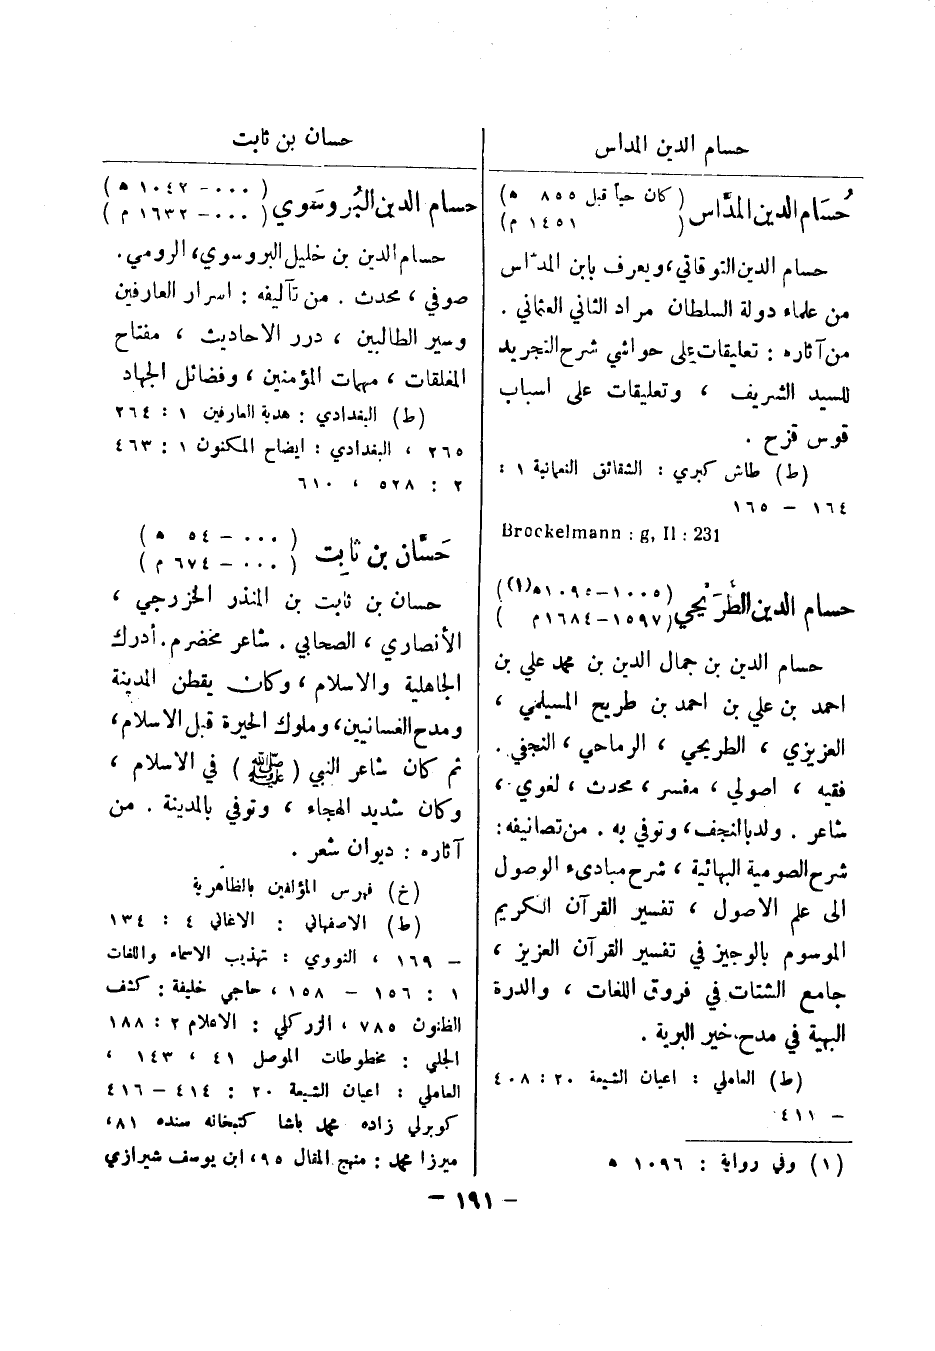 حسام الدين المداس
حُسَام الدين المدَّاس
( كان حياً قبل ٨٥٥ هـ )
( ١٤٥١ م )
حسام الدين التوقاتي، ويعرف بابن المدّاس
من علماء دولة السلطان مراد الثاني العثماني .
من آثاره : تعليقات على حواشي شرح التجريد
للسيد الشريف ، وتعليقات على اسباب
قوس قزح .
(ط) طاش كبري : الشقائق النعمانية ١ :
١٦٤ – ١٦٥
Brockelmann : g, II : 231
حسام الدين الطُّرَيحي
( ١٠٠٥ – ١٠٩٥ هـ (١) )
( ١٥٩٧ – ١٦٨٤ م )
حسام الدين بن جمال الدين بن محمد علي بن
احمد بن علي بن احمد بن طريح المسيلمي ،
العزيزي ، الطريحي ، الرماحي ، النجفي .
فقيه ، اصولي ، مفسر ، محدث ، لغوي ،
شاعر . ولد بالنجف، وتوفي به . من تصانيفه :
شرح الصومية البهائية ، شرح مبادىء الوصول
الى علم الاصول ، تفسير القرآن الكريم
الموسوم بالوجيز في تفسير القرآن العزيز ،
جامع الشتات في فروق اللغات ، والدرة
البهية في مدح خير البرية .
(ط) العاملي : اعيان الشيعة ٢٠ : ٤٠٨
– ٤١١
(١) وفي رواية : ١٠٩٦ هـ
حسان بن ثابت
حسام الدين البُروسَوي
( ٠٠٠ – ١٠٤٢ هـ )
( ٠٠٠ – ١٦٣٢ م )
حسام الدين بن خليل البروسوي، الرومي .
صوفي ، محدث . من تآليفه : اسرار العارفين
وسير الطالبين ، درر الاحاديث ، مفتاح
المغلقات ، مهمات المؤمنين ، وفضائل الجهاد
(ط) البغدادي : هدية العارفين ١ : ٢٦٤
٢٦٥ ، البغدادي : ايضاح المكنون ١ : ٤٦٣
٢ : ٥٢٨ ، ٦١٠
حَسَّان بن ثابِت
( ٠٠٠ – ٥٤ هـ )
( ٠٠٠ – ٦٧٤ م )
حسان بن ثابت بن المنذر الخزرجي ،
الأنصاري ، الصحابي . شاعر مخضرم . أدرك
الجاهلية والاسلام ، وكان يقطن المدينة
ومدح الغسانيين، وملوك الحيرة قبل الاسلام،
ثم كان شاعر النبي ( ﷺ ) في الاسلام ،
وكان شديد الهجاء ، وتوفي بالمدينة . من
آثاره : ديوان شعر .
(خ) فهرس المؤلفين بالظاهرية
(ط) الاصفهاني : الاغاني ٤ : ١٣٤
– ١٦٩ ، النووي : تهذيب الاسماء واللغات
١ : ١٥٦ – ١٥٨ ، حاجي خليفة : كشف
الظنون ٧٨٥ ، الزركلي : الاعلام ٢ : ١٨٨
الجلي : مخطوطات الموصل ٤١ ، ١٤٣ ،
العاملي : اعيان الشيعة ٢٠ : ٤١٤ – ٤١٦
كوبرلي زاده محمد باشا كتبخانه سنده ٨١،
ميرزا محمد : منهج المقال ٩٥، ابن يوسف شيرازي
– ١٩١ –